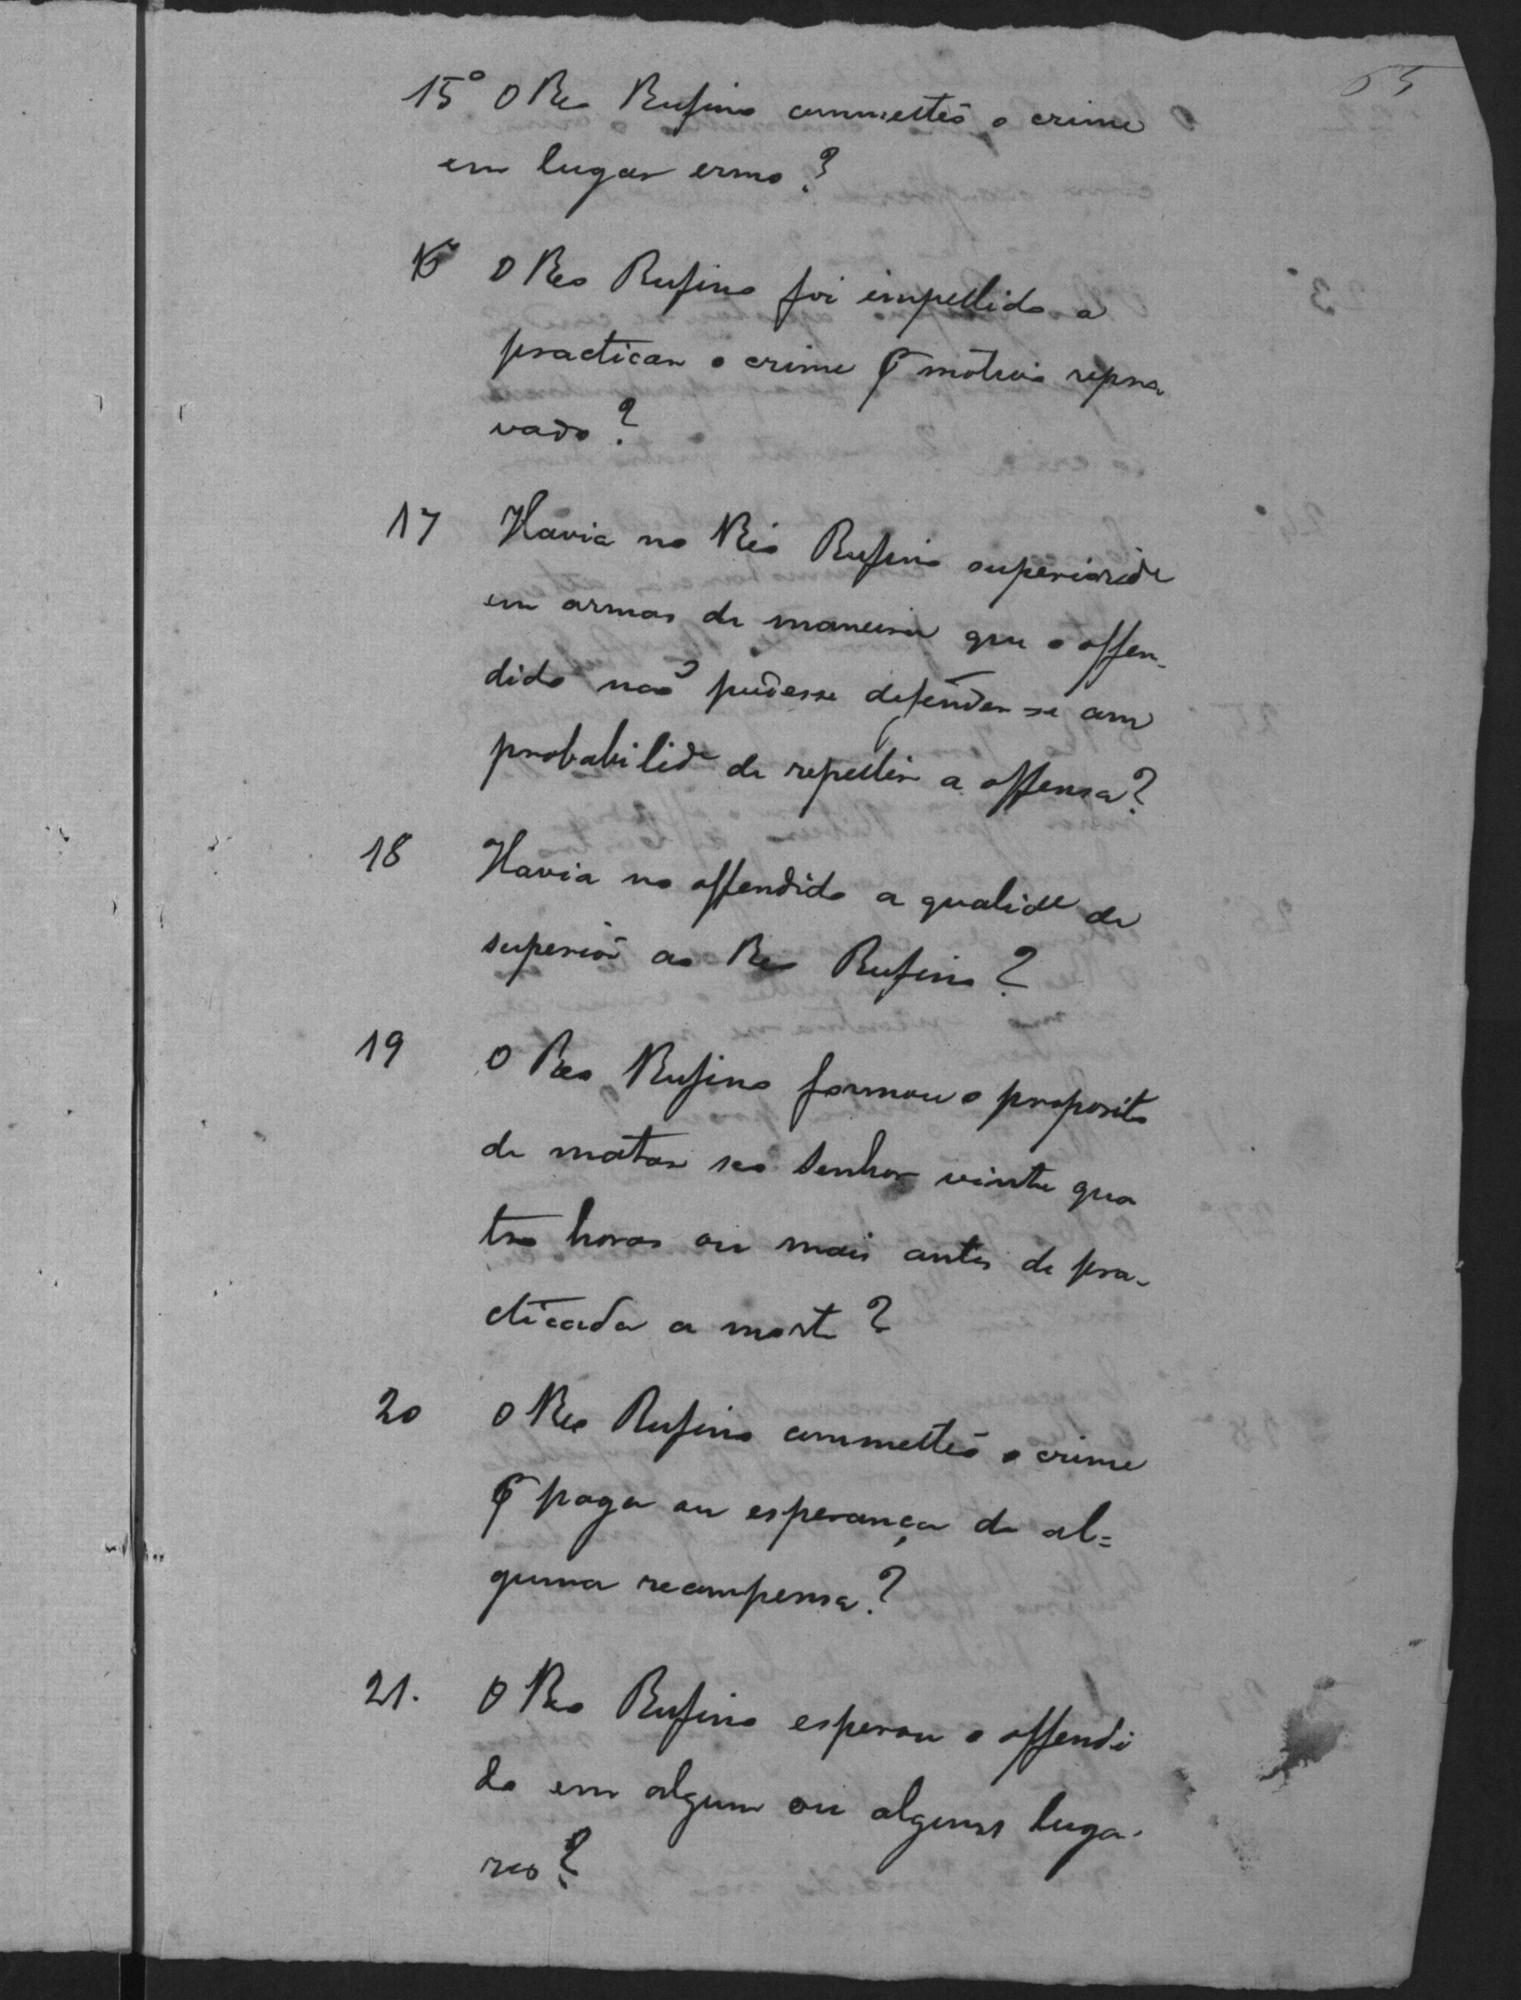 65
15º O Reo Rufino commetteo o crime
em lugar ermo?
16 O Reo Rufino foi impellido a
practicar o crime p motivo repro
vado?
17 Havia no Reo Rufino superioride
em armas de maneira que o offen-
dido não pudesse defender-se com
probabilide de repellir a offensa?
18 Havia no offendido a qualide de
superior ao Reo Rufino?
19 O Reo Rufino formou o proposito
de matar seo Senhor vinte qua
tro horas ou mais antes de pra-
cticada a morte?
20 O Reo Rufino commetteo o crime
p paga ou esperança de al=
guma recompensa?
21. O Reo Rufino esperou o offendi
do em algum ou alguns luga-
res?